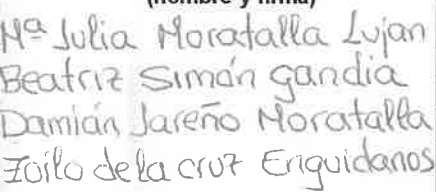 (nombre y firma)
Mª Julia Moratalla Lujan
Beatriz Simón gandia
Damián Jareño Moratalla
Zoilo de la cruz Enguidanos